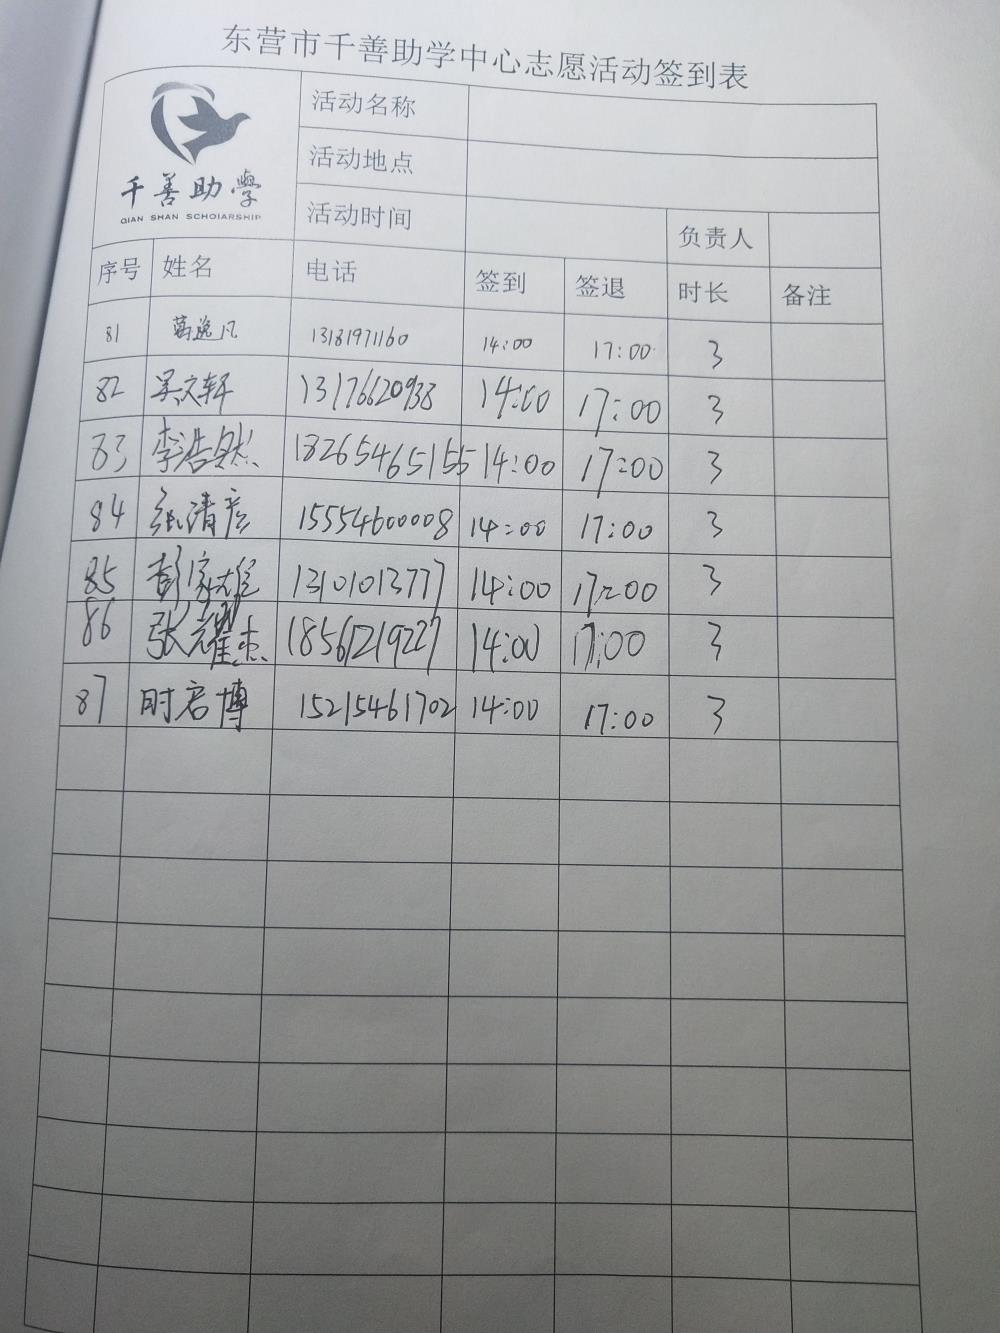 东营市千善助学中心志愿活动签到表
千善助學
QIAN SHAN SCHOLARSHIP
活动名称
活动地点
活动时间 负责人
序号 姓名 电话 签到 签退 时长 备注
81 葛逸凡 13181971160 14:00 17:00 3
82 吴文轩 13176620938 14:00 17:00 3
83 李浩然 18265465155 14:00 17:00 3
84 张清彦 15554600008 14:00 17:00 3
85 彭家雄 13101013777 14:00 17:00 3
86 张耀杰 18561219227 14:00 17:00 3
87 时启博 15215461702 14:00 17:00 3